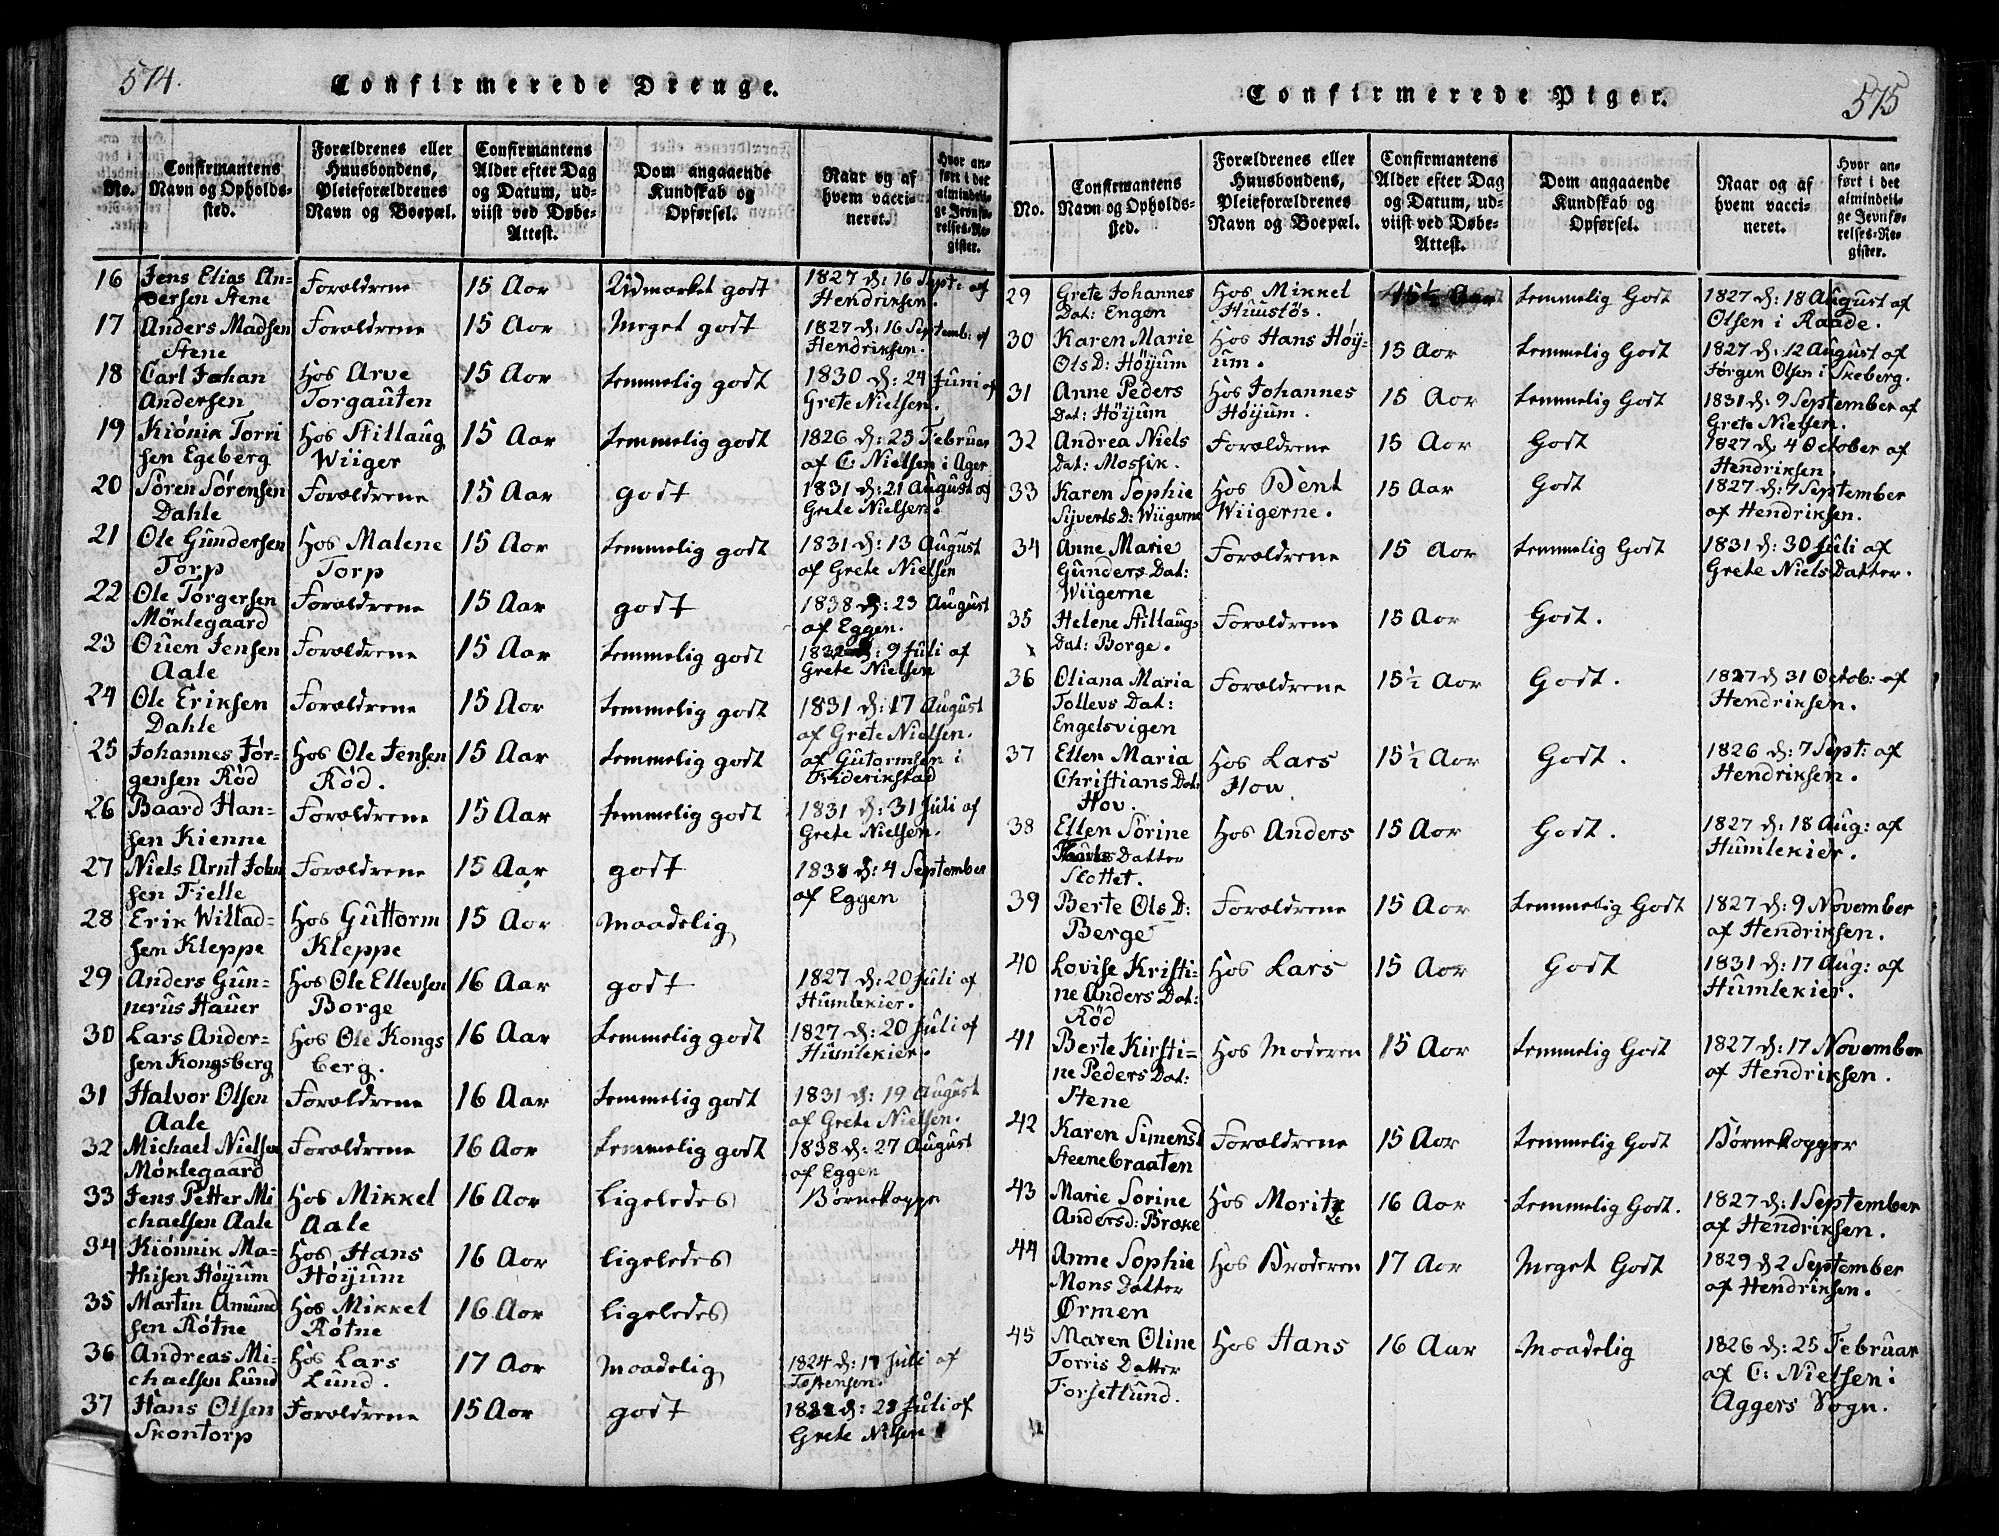 574.
Confirmerede Drenge.
No.
Confirmantens Navn og Opholdssted.
Forældrenes eller Huusbondens, Pleieforældrenes Navn og Boepæl.
Confirmantens Alder efter Dag og Datum, udviist ved Døbe-Attest.
Dom angaaende Kundskab og Opførsel.
Naar og af hvem vaccineret.
Hvor anført i det almindelige Jevnførelses-Register.
16 Jens Elias Andersen Stene Forældrene 15 Aar Udmærket godt 1827 d: 16 Sept: af Hendriksen.
17 Anders Madsen Stene Forældrene 15 Aar Meget godt 1827 d: 16 Septemb: af Hendriksen.
18 Carl Johan Andersen Hos Arve Torgauten 15 Aar temmelig godt 1830 d: 24 Juni af Grete Nielsen.
19 Kiönik Torrisen Egeberg Hos Stillaug Wiiger 15 Aar temmelig godt 1826 d: 25 Februar af C: Nielsen i Ager
20 Sören Sörensen Dahle Forældrene 15 Aar godt 1831 d: 21 August af Grete Nielsen.
21 Ole Gundersen Torp Hos Malene Torp 15 Aar temmelig godt 1831 d: 13 August af Grete Nielsen
22 Ole Torgersen Möklegaard Forældrene 15 Aar godt 1838 d: 23 August af Eggen.
23 Ouen Jensen Aale Forældrene 15 Aar temmelig godt d: 9 Juli af Grete Nielsen
24 Ole Eriksen Dahle Forældrene 15 Aar temmelig godt 1831 d: 17 August af Grete Nielsen.
25 Johannes Jörgensen Röd Hos Ole Jensen Röd. 15 Aar temmelig godt af Gutormsen i Friderikstad
26 Baard Hansen Kienne Forældrene 15 Aar temmelig godt 1831 d: 31 Juli af Grete Nielsen.
27 Niels Arnt Johnsen Fielle Forældrene 15 Aar godt 1838 d: 4 September af Eggen
28 Erik Willadsen Kleppe Hos Guttorm Kleppe 15 Aar maadelig
29 Anders Gunnerus Hauer Hos Ole Ellevsen Borge 16 Aar godt 1827 d: 20 Juli af Humlekier.
30 Lars Andersen Kongsberg Hos Ole Kongsberg. 16 Aar temmelig godt 1827 d: 20 Juli af Humlekier.
31 Halvor Olsen Aale Forældrene 16 Aar temmelig godt 1831 d: 19 August af Grete Nielsen.
32 Michael Nielsen Möklegaard Forældrene 16 Aar temmelig godt 1838 d: 27 August af Eggen
33 Jens Petter Michaelsen Aale Hos Mikkel Aale 16 Aar ligeledes Børnekopper
34 Kiönnik Mathisen Höyum Hos Hans Höyum 16 Aar ligeledes
35 Martin Amundsen Rötne Hos Mikkel Rötne 16 Aar ligeledes
36 Andreas Michaelsen Lund Hos Lars Lund. 17 Aar maadelig 1824 d: 17 Juli af Tostensen.
37 Hans Olsen Skontorp Forældrene 15 Aar godt d: 28 Juli af Grete Nilsen
Confirmerede Piger.
575
No.
Confirmantens Navn og Opholdssted.
Forældrenes eller Huusbondens, Pleieforældrenes Navn og Boepæl.
Confirmantens Alder efter Dag og Datum, udviist ved Døbe-Attest.
Dom angaaende Kundskab og Opførsel.
Naar og af hvem vaccineret.
Hvor anført i det almindelige Jevnførelses-Register.
29 Grete Johannes Dat: Engen Hos Mikkel Huustös. 15½ Aar temmelig Godt 1827 d: 18 August af Olsen i Raade.
30 Karen Marie Ols D: Höyum Hos Hans Höyum. 15 Aar temmelig Godt 1827 d: 12 August af Jörgen Olsen i Skeberg.
31 Anne Peders Dat: Höyum Hos Johannes Höyum. 15 Aar temmelig Godt 1831 d: 9 September af Grete Nielsen.
32 Andrea Niels Dat: Mossik. Forældrene 15 Aar Godt 1827 d: 4 October af Hendriksen.
33 Karen Sophie Sijverts D: Wiigerne Hos Bent Wiigerne. 15 Aar Godt 1827 d: 7 September af Hendriksen.
34 Anne Marie Gunders Dat: Wiigerne Forældrene 15 Aar temmelig Godt 1831 d: 30 Juli af Grete Niels Datter.
35 Helene Stillaugs Dat: Borge. Forældrene 15 Aar Godt.
36 Oliana Maria Tollevs Dat: Engelsvigen Forældrene 15½ Aar Godt. 1827 d 31 Octob: af Hendriksen.
37 Ellen Maria Christians Dat: Hov. Hos Lars Hov 15½ Aar Godt. 1826 d: 7 Sept: af Hendriksen.
38 Ellen Sörine Datter Slottet. Hos Anders 15 Aar Godt. 1827 d: 18 Aug: af Humlekier.
39 Berte Ols D: Berge Forældrene 15 Aar temmelig Godt 1827 d: 9 November af Hendriksen.
40 Lovise Kristine Anders Dat: Röd Hos Lars 15 Aar Godt 1831 d: 17 Aug: af Humlekier.
41 Berte Kirstine Peders Dat: Stene Hos Moderen 15 Aar temmelig Godt 1827 d: 17 November af Hendriksen.
42 Karen Simensd Steenebraaten Forældrene 15 Aar temmelig Godt Börnekopper
43 Marie Sorine Andersd: Bræke Hos Moritz 16 Aar temmelig Godt. 1827 d: 1 September af Hendriksen.
44 Anne Sophie Mons Datter Ørmen Hos Broderen 17 Aar Meget Godt 1829 d 2 September af Hendriksen.
45 Maren Oline Torris Datter Forsetlund. Hos Hans 16 Aar Maadelig 1826 d: 25 Februar af C: Nielsen i Aggers Sogn.